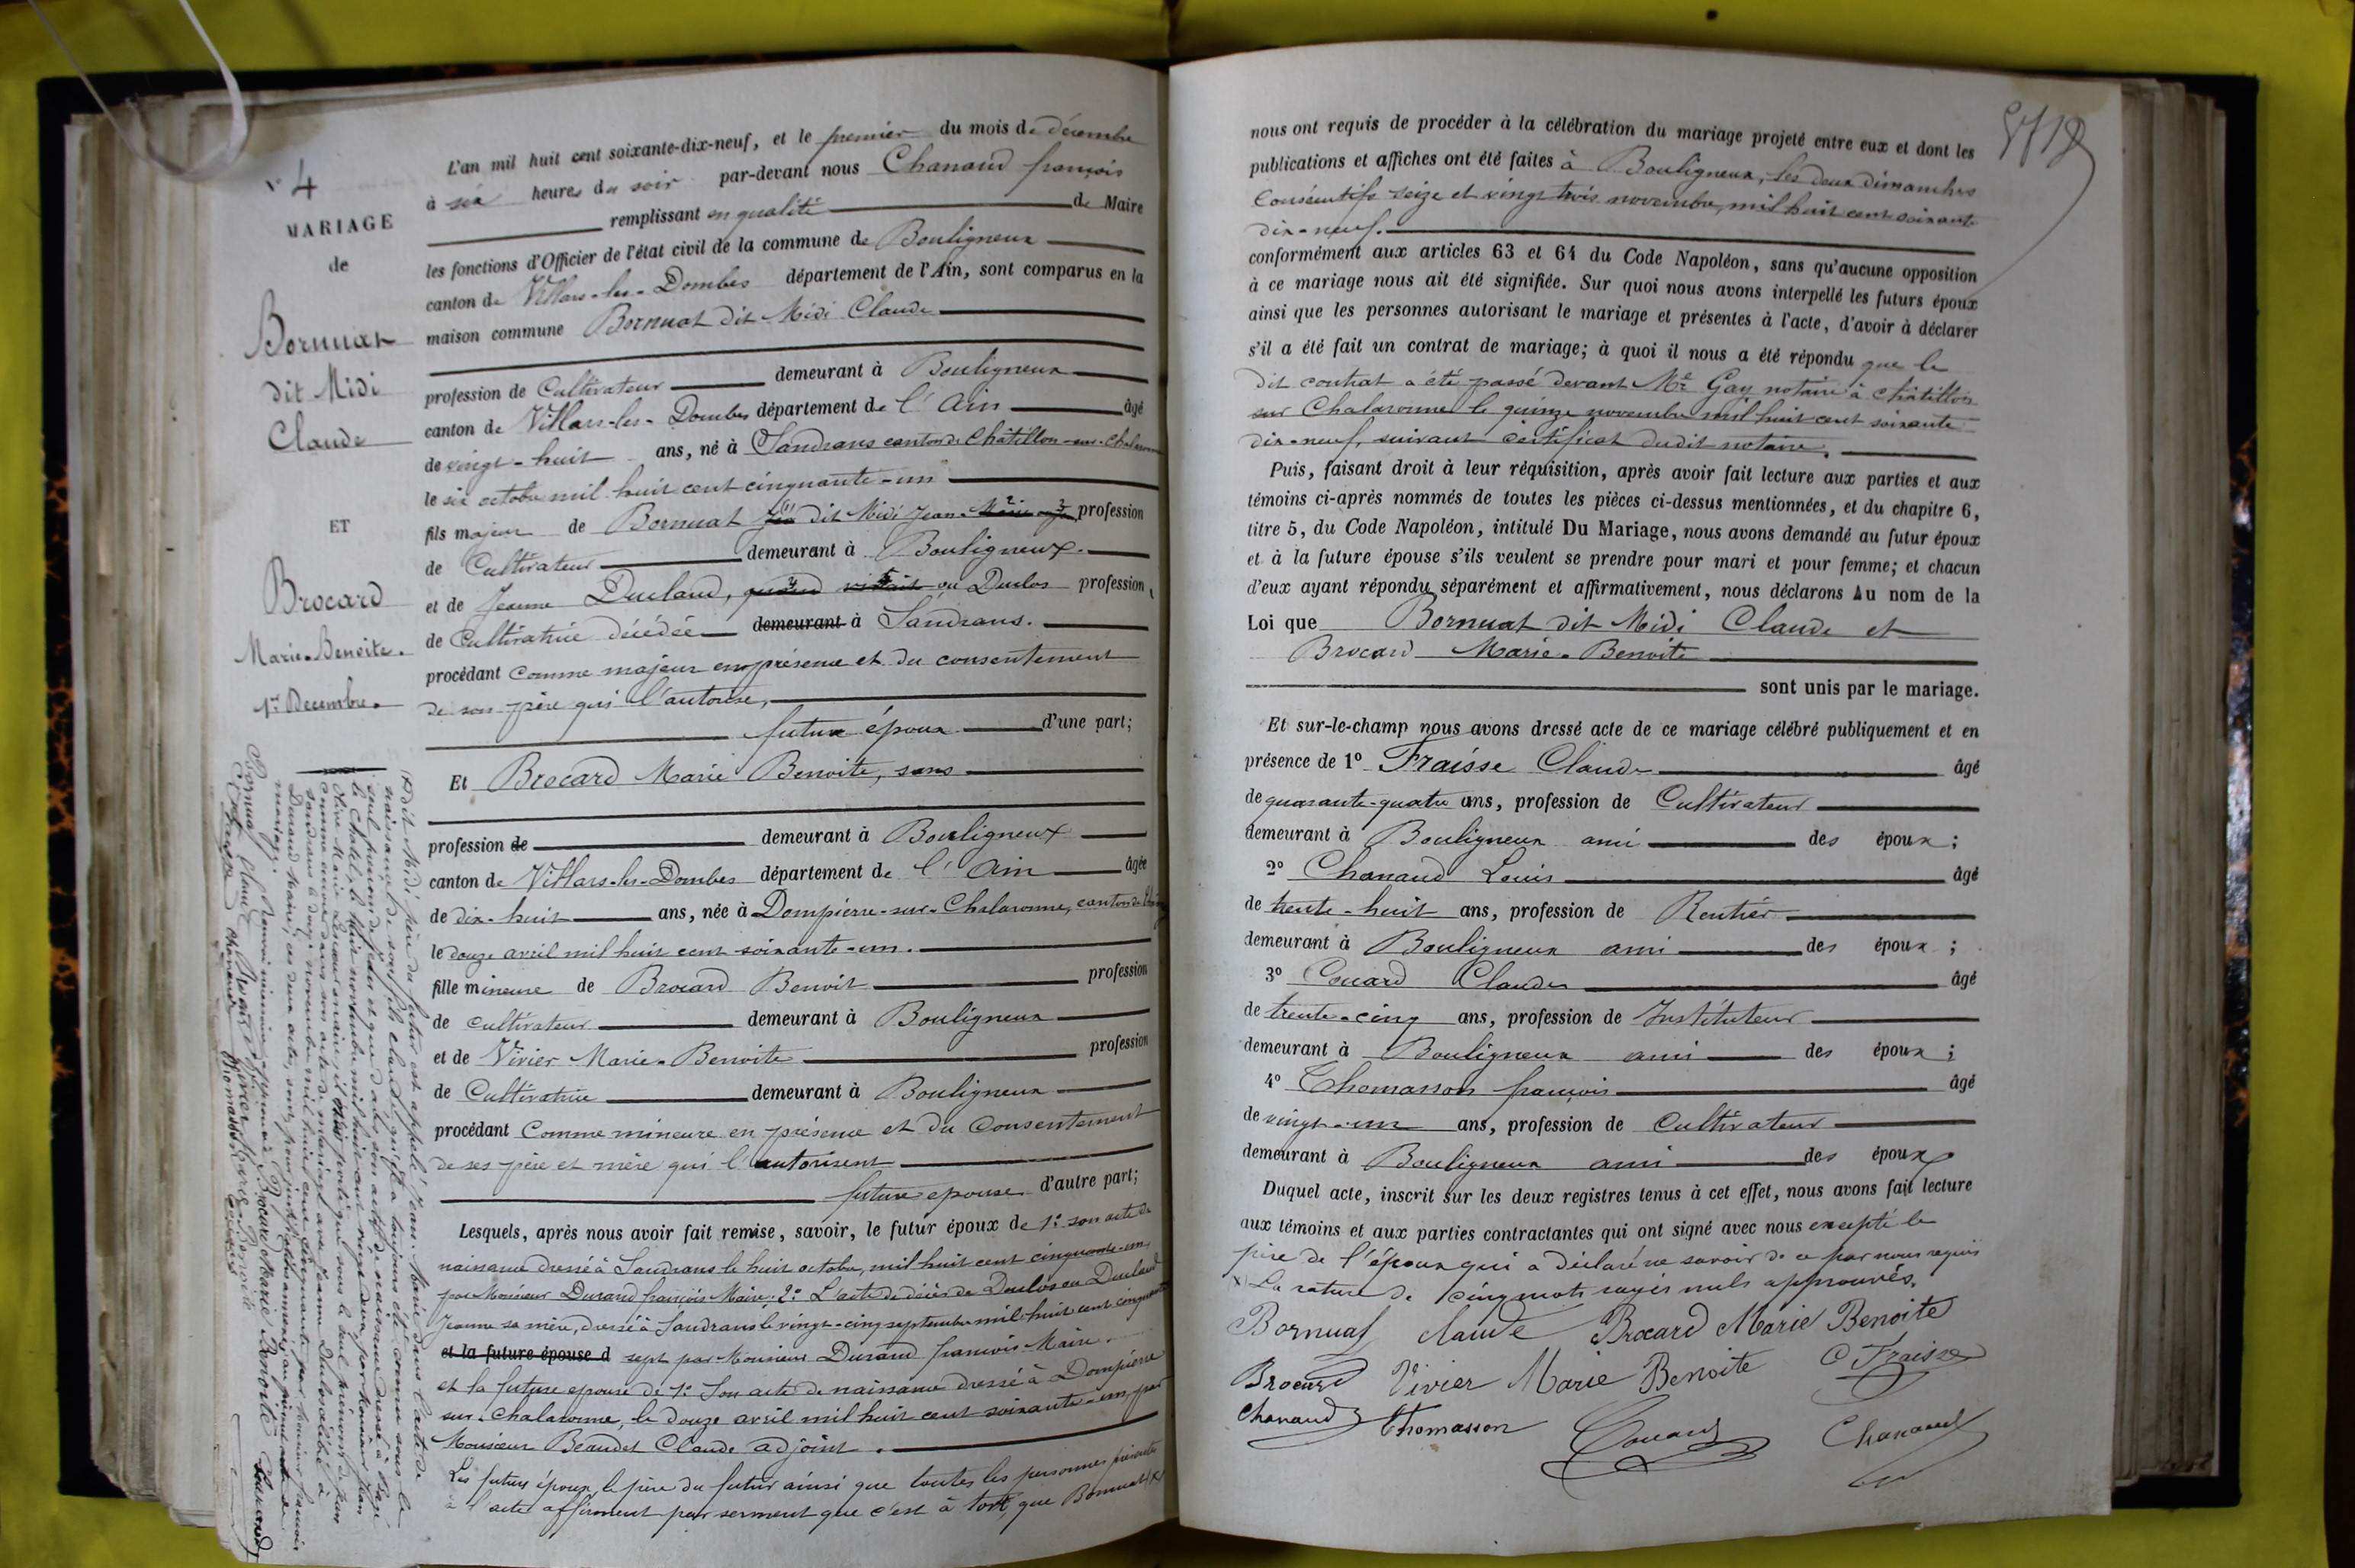 N° 4
MARIAGE
de
Bornuat
dit Midi
Claude
ET
Brocard
Marie-Benoite.
1er Decembre.
L'an mil huit cent soixante-dix-neuf, et le premier du mois de décembre
à six heures du soir par-devant nous Chanaud françois
remplissant en qualité de Maire
les fonctions d'Officier de l'état civil de la commune de Bouligneux
canton de Villars-les-Dombes département de l'Ain, sont comparus en la
maison commune Bornuat dit Midi Claude
profession de Cultivateur demeurant à Bouligneux
canton de Villars-les-Dombes département de l'Ain âgé
de vingt-huit ans, né à Sandrans canton de Châtillon-sur-Chalaronne
le six octobre mil huit cent cinquante-un
fils majeur de Bornuat dit Midi Jean-Marie profession
de Cultivateur demeurant à Bouligneux.
et de Jeanne Duclaud, ou Duclos profession
de Cultivatrice décédée demeurant à Sandrans.
procédant comme majeur en présence et du consentement
de son père qui l'autorise,
futur époux d'une part;
Et Brocard Marie Benoite, sans
profession de demeurant à Bouligneux
canton de Villars-les-Dombes département de l'Ain âgée
de dix-huit ans, née à Dompierre-sur-Chalaronne, canton de
le douze avril mil huit cent soixante-un.
fille mineure de Brocard Benoit profession
de cultivateur demeurant à Bouligneux
et de Vivier Marie-Benoite profession
de Cultivatrice demeurant à Bouligneux
procédant Comme mineure en présence et du Consentement
de ses père et mère qui l'autorisent
future epouse d'autre part;
Lesquels, après nous avoir fait remise, savoir, le futur époux de 1°: son acte de
naissance dressé à Sandrans le huit octobre, mil huit cent cinquante-un,
par Monsieur Durand françois Maire; 2°: L'acte de décès de Duclos ou Duclaud
Jeanne sa mère, dressé à Sandrans le vingt-cinq septembre mil huit cent cinquante
et la future épouse d sept par Monsieur Durand françois Maire.
et la future epouse de 1°: Son acte de naissance dressé à Dompierre
sur-Chalaronne, le douze avril mil huit cent soixante-un, par
Monsieur Beaudet Claude adjoint.
Les futurs époux, le père du futur ainsi que toutes les personnes présentes
à l'acte affirment par serment que c'est à tort que Bornuat (X)
(X) dit Midi père du futur est appelé Jean-Marie dans l'acte de
naissance de son fils Claude, qu'il a toujours été connu sous le
seul prénom de Jean et que dans son acte de naissance dressé à
le Chatel, le huit novembre mil huit cent vingt deux par Monsieur Jean
commune dans son acte de mariage avec Jeanne Duclos célébré à
Sandrans le douze novembre mil huit cent cinquante par Monsieur françois
Durand Maire; ces deux actes sont pour justification annexés au présent acte de
mariage. Renvoi unanime approuvé
Bornuat Claude Brocard Marie Benoite
Vivier Marie-Benoite Chanaud
C. Fraisse Chanaud Thomasson Couard
nous ont requis de procéder à la célébration du mariage projeté entre eux et dont les
publications et affiches ont été faites à Bouligneux, les deux dimanches
Consécutifs seize et vingt trois novembre, mil huit cent soixante
dix-neuf.
conformément aux articles 63 et 64 du Code Napoléon, sans qu'aucune opposition
à ce mariage nous ait été signifiée. Sur quoi nous avons interpellé les futurs époux
ainsi que les personnes autorisant le mariage et présentes à l'acte, d'avoir à déclarer
s'il a été fait un contrat de mariage; à quoi il nous a été répondu que le
dit contrat a été passé devant Me Gay notaire à Châtillon
sur Chalaronne le quinze novembre mil huit cent soixante
dix-neuf, suivant certificat dudit notaire.
Puis, faisant droit à leur réquisition, après avoir fait lecture aux parties et aux
témoins ci-après nommés de toutes les pièces ci-dessus mentionnées, et du chapitre 6,
titre 5, du Code Napoléon, intitulé Du Mariage, nous avons demandé au futur époux
et à la future épouse s'ils veulent se prendre pour mari et pour femme; et chacun
d'eux ayant répondu séparément et affirmativement, nous déclarons Au nom de la
Loi que Bornuat dit Midi Claude et
Brocard Marie-Benoite
sont unis par le mariage.
Et sur-le-champ nous avons dressé acte de ce mariage célébré publiquement et en
présence de 1° Fraisse Claude âgé
de quarante-quatre ans, profession de Cultivateur
demeurant à Bouligneux ami des époux;
2° Chanaud Louis âgé
de trente-huit ans, profession de Rentier
demeurant à Bouligneux ami des époux;
3° Couard Claude âgé
de trente-cinq ans, profession de Instituteur
demeurant à Bouligneux ami des époux;
4° Thomasson françois âgé
de vingt-un ans, profession de Cultivateur
demeurant à Bouligneux ami des époux
Duquel acte, inscrit sur les deux registres tenus à cet effet, nous avons fait lecture
aux témoins et aux parties contractantes qui ont signé avec nous excepté le
père de l'époux qui a déclaré ne savoir de ce par nous requis
X La rature de cinq mots rayés nuls approuvés.
Bornuat claude Brocard Marie Benoite
Brocard Vivier Marie Benoite C Fraisse
Chanaud Thomasson Couard Chanaud